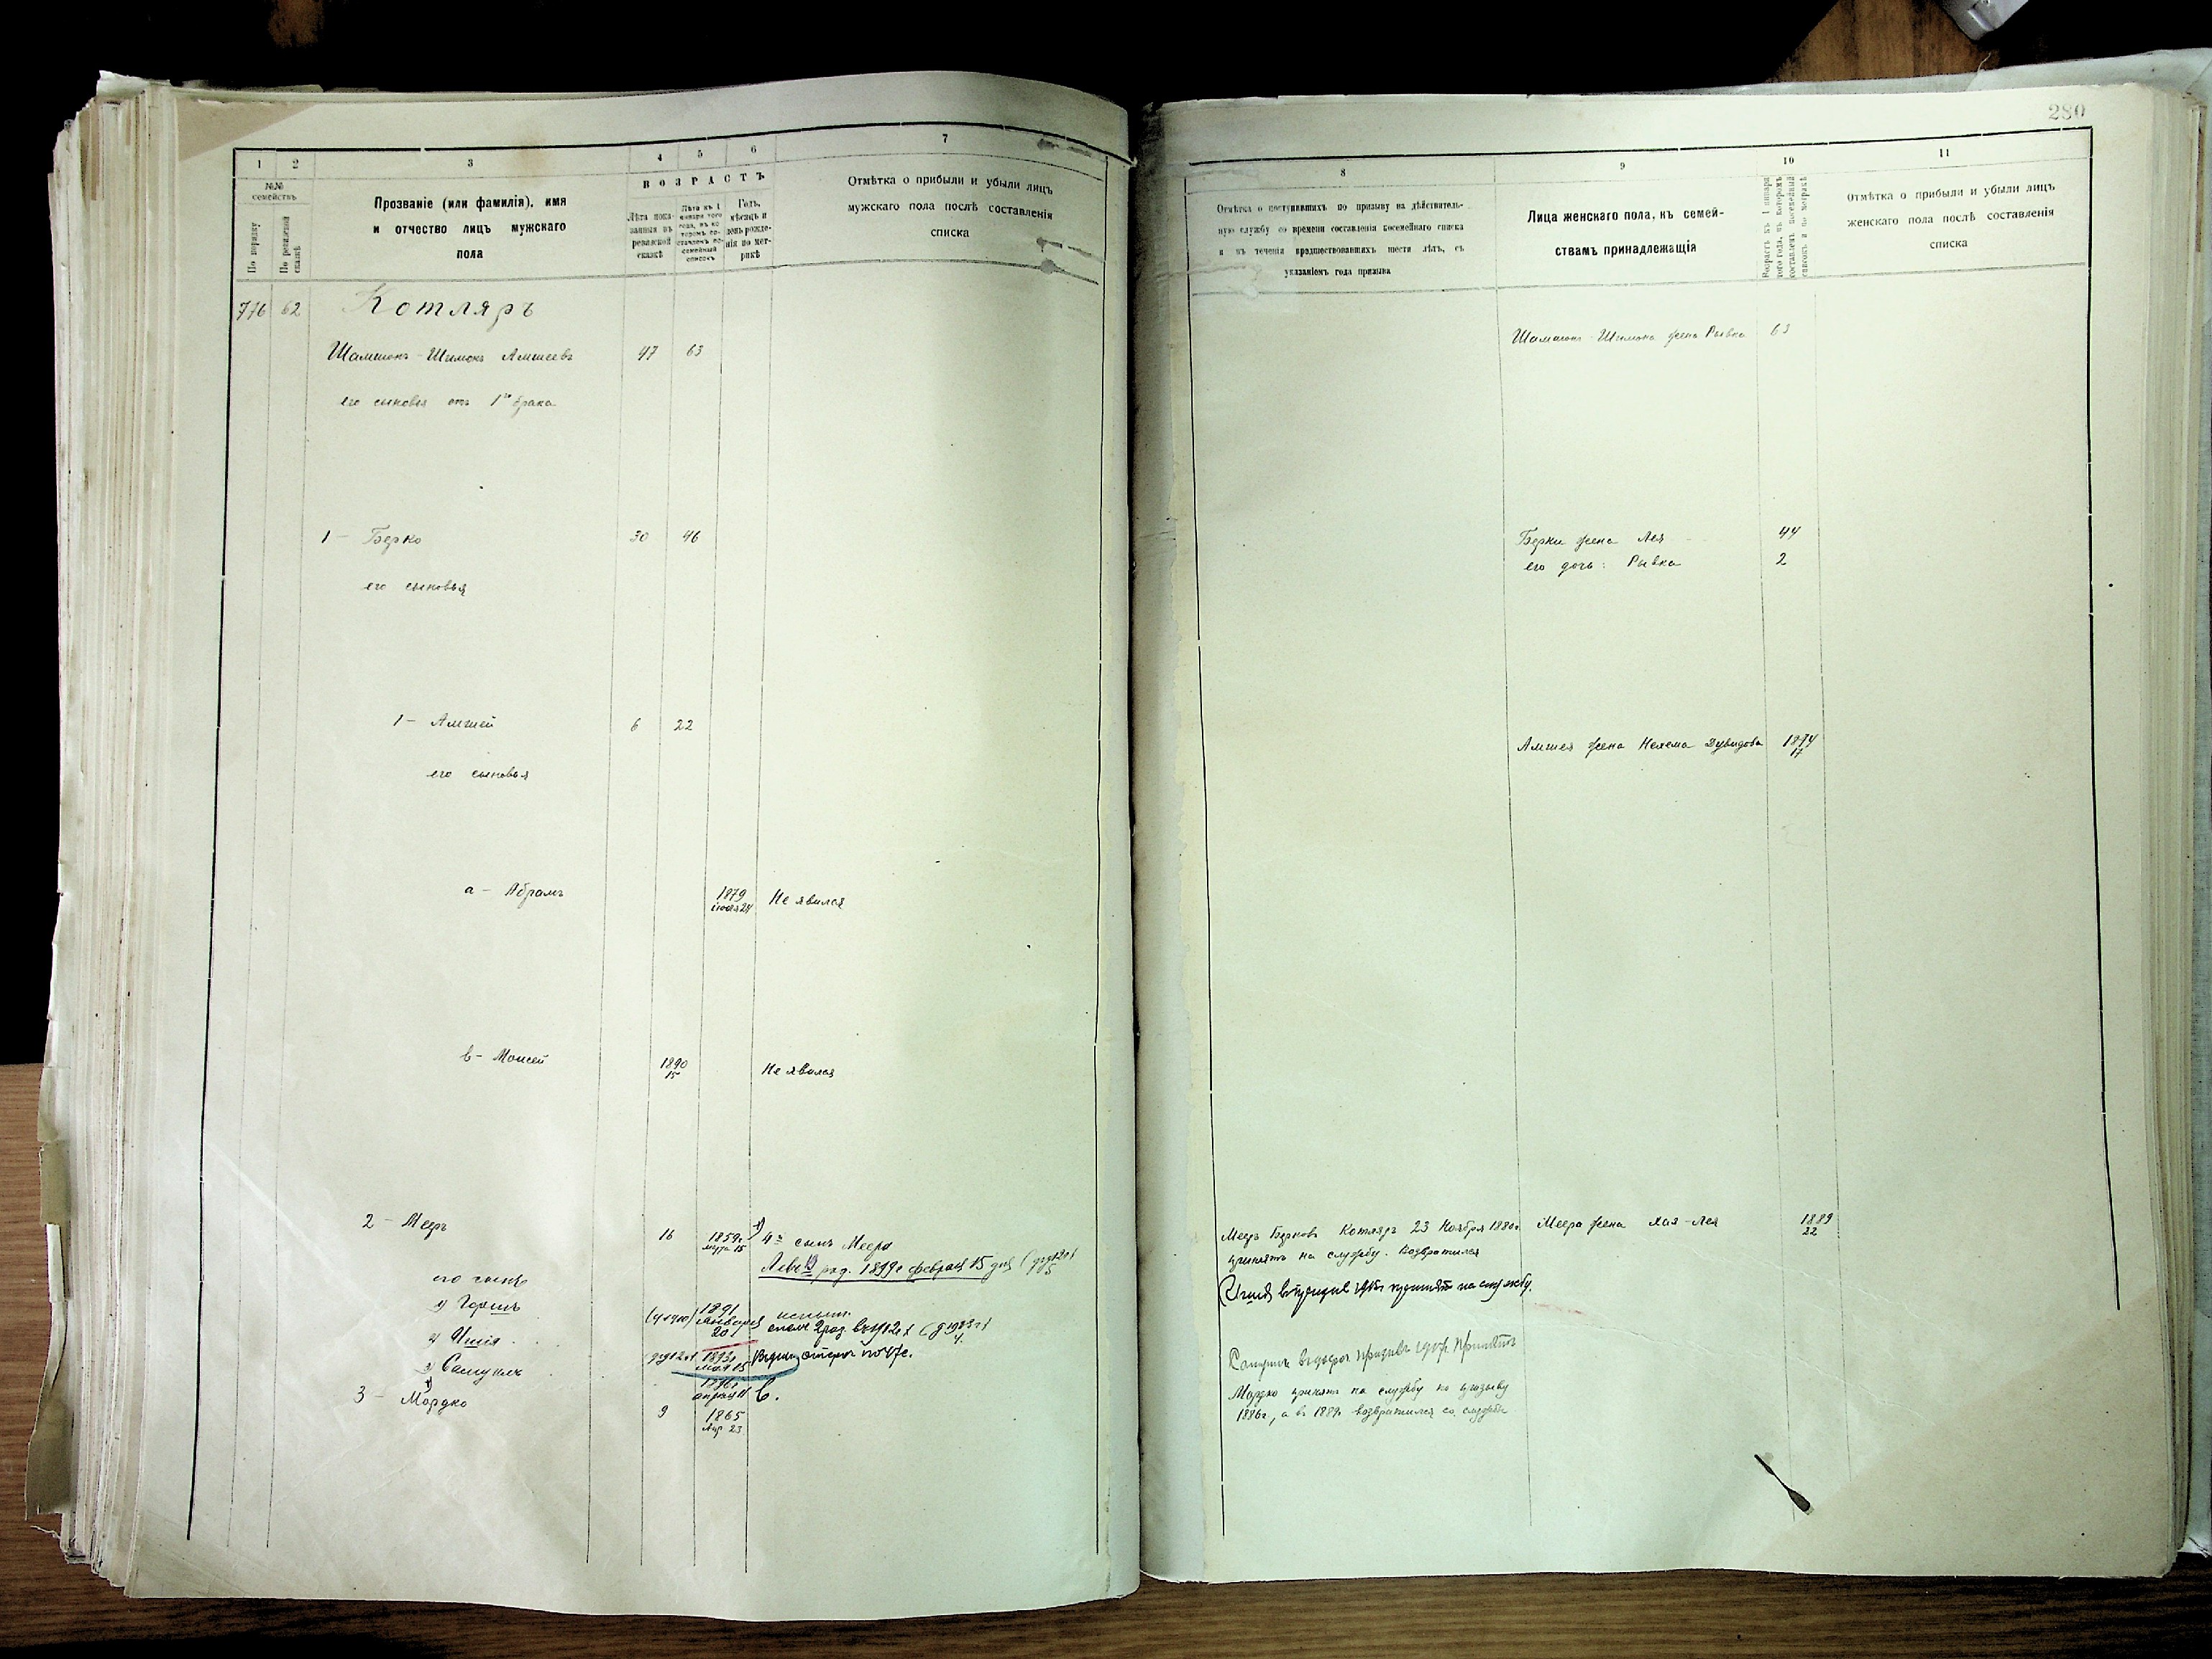 280
1 2 3 4 5 6 7
№№ семействъ
По порядку
По ревизской сказкѣ
Прозваніе (или фамилія), имя
и отчество лицъ мужскаго
пола
ВОЗРАСТЪ
Лѣта пока-
занныя въ
ревизской
сказкѣ
Лѣта къ 1
января того
года, въ ко-
торомъ со-
ставленъ по-
семейный
списокъ
Годъ,
мѣсяцъ и
день рожде-
нія по мет-
рикѣ
Отмѣтка о прибыли и убыли лицъ
мужскаго пола послѣ составленія
списка
776 62 Котляръ
Шамшонъ-Шимонъ Амшеевъ 47 63
его сыновья отъ 1го брака
1 - Берко 30 46
его сыновья
1 - Амшей 6 22
его сыновья
а - Абрамъ 1879 Не явился
в - Моисей 1890 15 Не явился
2 - Мееръ 16 1859г. марта 15 4й сынъ Меера
род. 1899г февраля 15 дня
его сынъ
1) Гершъ 1891 января 20
2) Ишія 1893г мая 15
3) Самуилъ 1896г апреля
3 - Мордко 9 1865 Апр 23
8 9 10 11
Отмѣтка о поступившихъ по призыву на дѣйствитель-
ную службу со времени составленія посемейнаго списка
и въ теченіи предшествовавшихъ шести лѣтъ, съ
указаніемъ года призыва
Лица женскаго пола, къ семей-
ствамъ принадлежащія
Возрастъ къ 1 января
того года, въ которомъ
составленъ посемейный
списокъ и по метрикѣ
Отмѣтка о прибыли и убыли лицъ
женскаго пола послѣ составленія
списка
Шамшонъ-Шимона жена Рывка 63
Берки жена Лея 44
его дочь: Рывка 2
Амшея жена Нехема Дувидова 1874 17
Мееръ Берковъ Котляръ 23 Ноября 1880г. Меера жена Хая-Лея 1889 22
принятъ на службу. Возвратился
принятъ на службу.
Самуилъ принятъ
Мордко принятъ на службу по призыву
1886г, а въ 1889г возвратился со службы